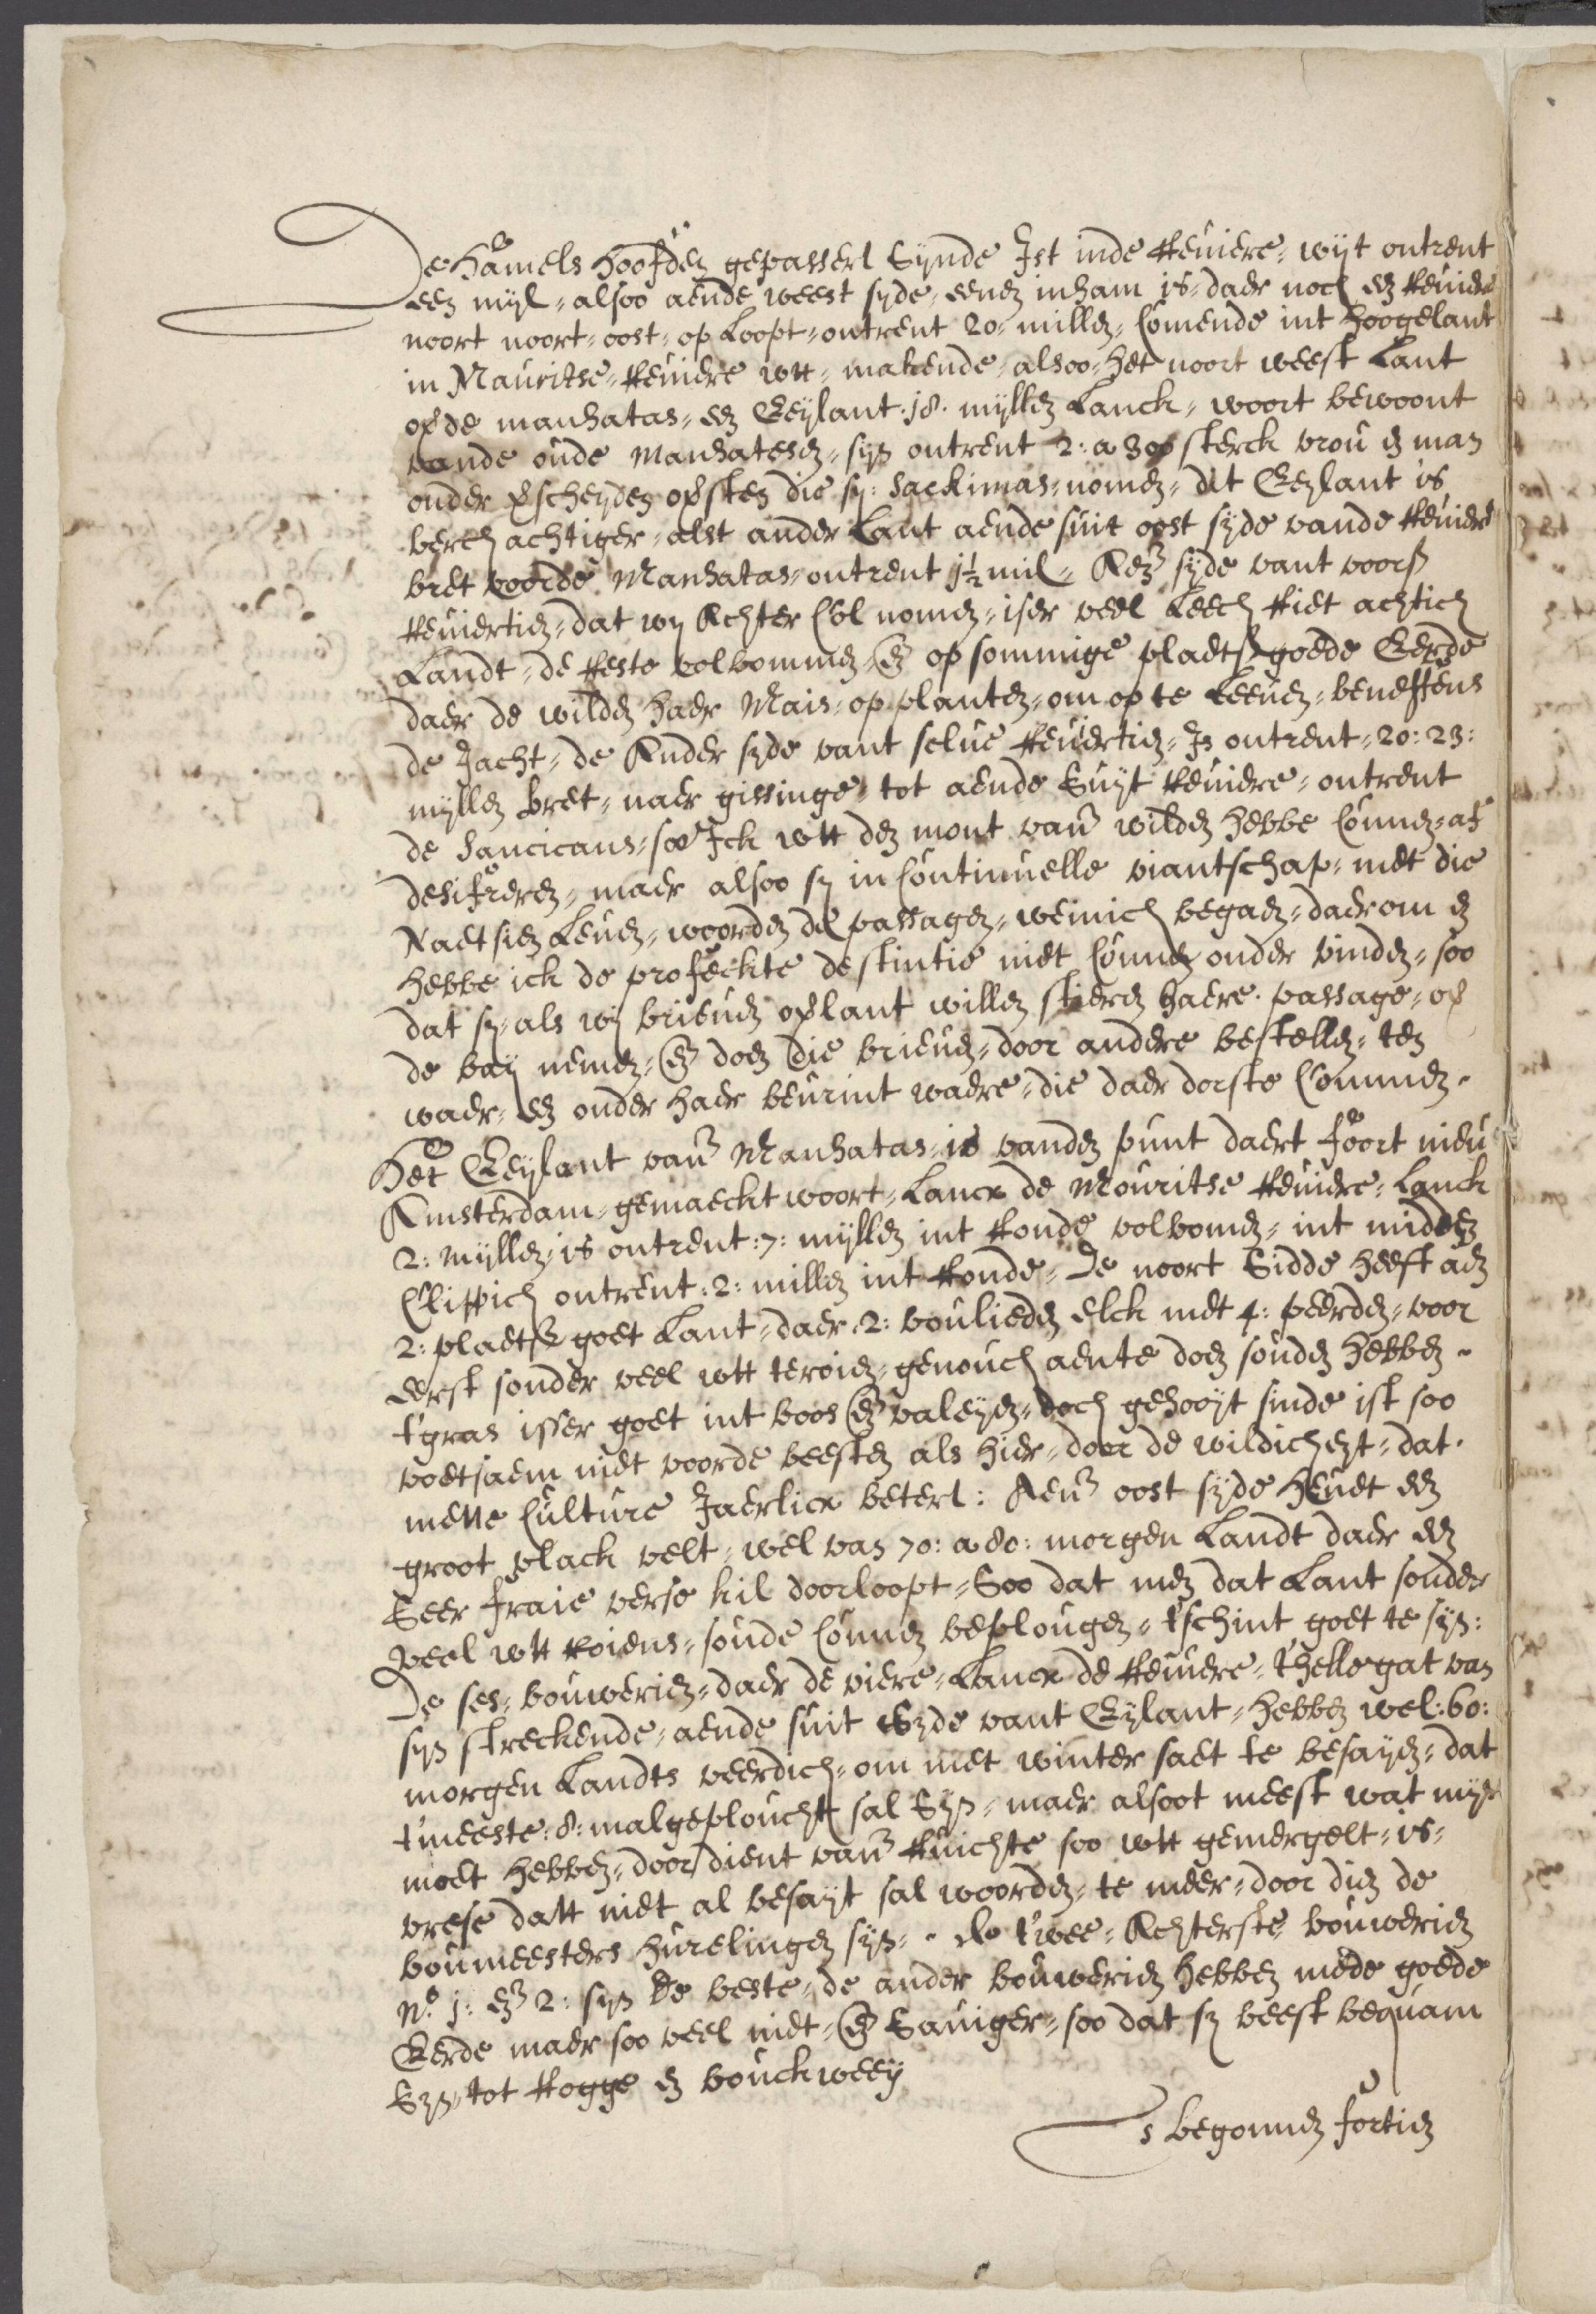 De Hamels Hoofden gepasseert Synde Ist inde Reviere, wijt ontrent
een myl, alsoo aende weest syde, eenen inham is, daer noch en Revier
noort noort, oost, op Loopt, ontrent 20, millen, Comende int Hoogelant
in Mauritse, Reviere wtt, makende, alsoo, Het noort weest Lant
op de manhatas, en Eeylant 18. myllen Lanck, woort bewoont
vande oude manhatesen, syn ontrent 2: a 300 sterck vrou en man
onder verscheyden oversten die sy: Sackimas, nomen, dit Eeylant is
berch achtiger, alst ander Lant aende suit oost syde vande Revier
bret voorde Manhatas, ontrent 1½ mil, Aen syde vant voors
Reviertien, dat wy Achter Col nomen, iser veel Leech Riet achtich
Landt, de Reste vol bommen, en op sommige plaets goede Eerde
daer de wilden haer Mais, op planten, om op te Leeven, beneffens
de Jacht, de Ander syde vant selve Reviertien, Is ontrent, 20: 23:
myllen bret, naer gissinge, tot aende Suyt Reviere, ontrent
de Sancicans, soo Ick wtt den mont van wilden hebbe Connen, af
desifreren, maer alsoo sy in Continuelle viantschap, met die
Naetsien Leven, woorden de passagen, weinich begaen, daerom en
hebbe ick de profeckte destintie niet Connen onder vinden, soo
dat sy, als wy brieven over lant willen stieren haere passage, over
de bay nemen, en doen die brieven, door andere bestellen, ten
waer, en onder haer bevrint waere, die daer dorste Commen.
Het Eeylant van Manhatas, is vanden punt daert foort nieu
Amsterdam, gemaeckt woort, Lancx de Mouritse Reviere, Lanck
2: myllen, is ontrent: 7: myllen int Ronde vol bomen, int midden
Clippich ontrent: 2: millen int Ronde, De noort Sidde heeft aen
2: plaets goet Lant, daer 2: boulieden elck met 4: peerden, voor
eerst sonder veel wtt teroien, genouch aente doen souden hebben.
t'gras isser goet int bos en valeyen, doch gehooyt sinde ist soo
voetsaem niet voorde beesten als hier, door de wildicheyt, dat
mette Culture Jaerlicx betert: Aen oost syde heudt een
groot vlack velt, wel van 70: a 80: morgen Landt daer een
Seer fraie verse kil doorloopt, Soo dat men dat Lant sonder
veel wtt Roiens, soude Connen beplougen, t'schint goet te syn:
De ses, bouwerien, daer de viere, Lancx de Reviere, t'hellegat van
syn streckende, aende suit Syde vant Eylant, hebben wel: 60:
morgen Landts veerdich, om met winter saet te besayen, dat
t'meeste: 8: mal geploucht sal Syn, maer alsoot meest wat mys
moet hebben, door dient van Ruichte soo wtt gemergelt, is,
vrese datt niet al besayt sal woorden, te meer, door dien de
boumeesters hurelingen syn, . de twee, Achterste, bouwerien
No. 1: en 2: syn de beste, de ander bouwerien hebben mede goede
Eerde maer soo veel niet, en Saviger, soo dat sy beest bequam
Syn, tot Rogge en bouckweey
's begonnen fortien